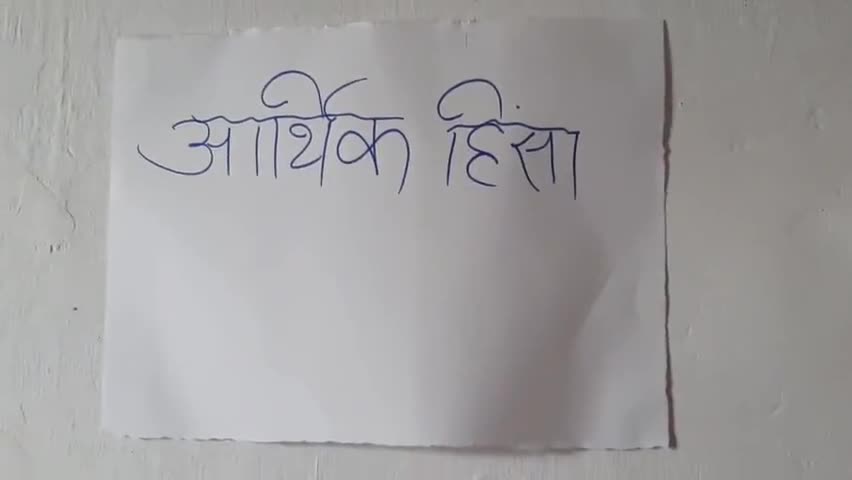 आर्थिक हिंसा